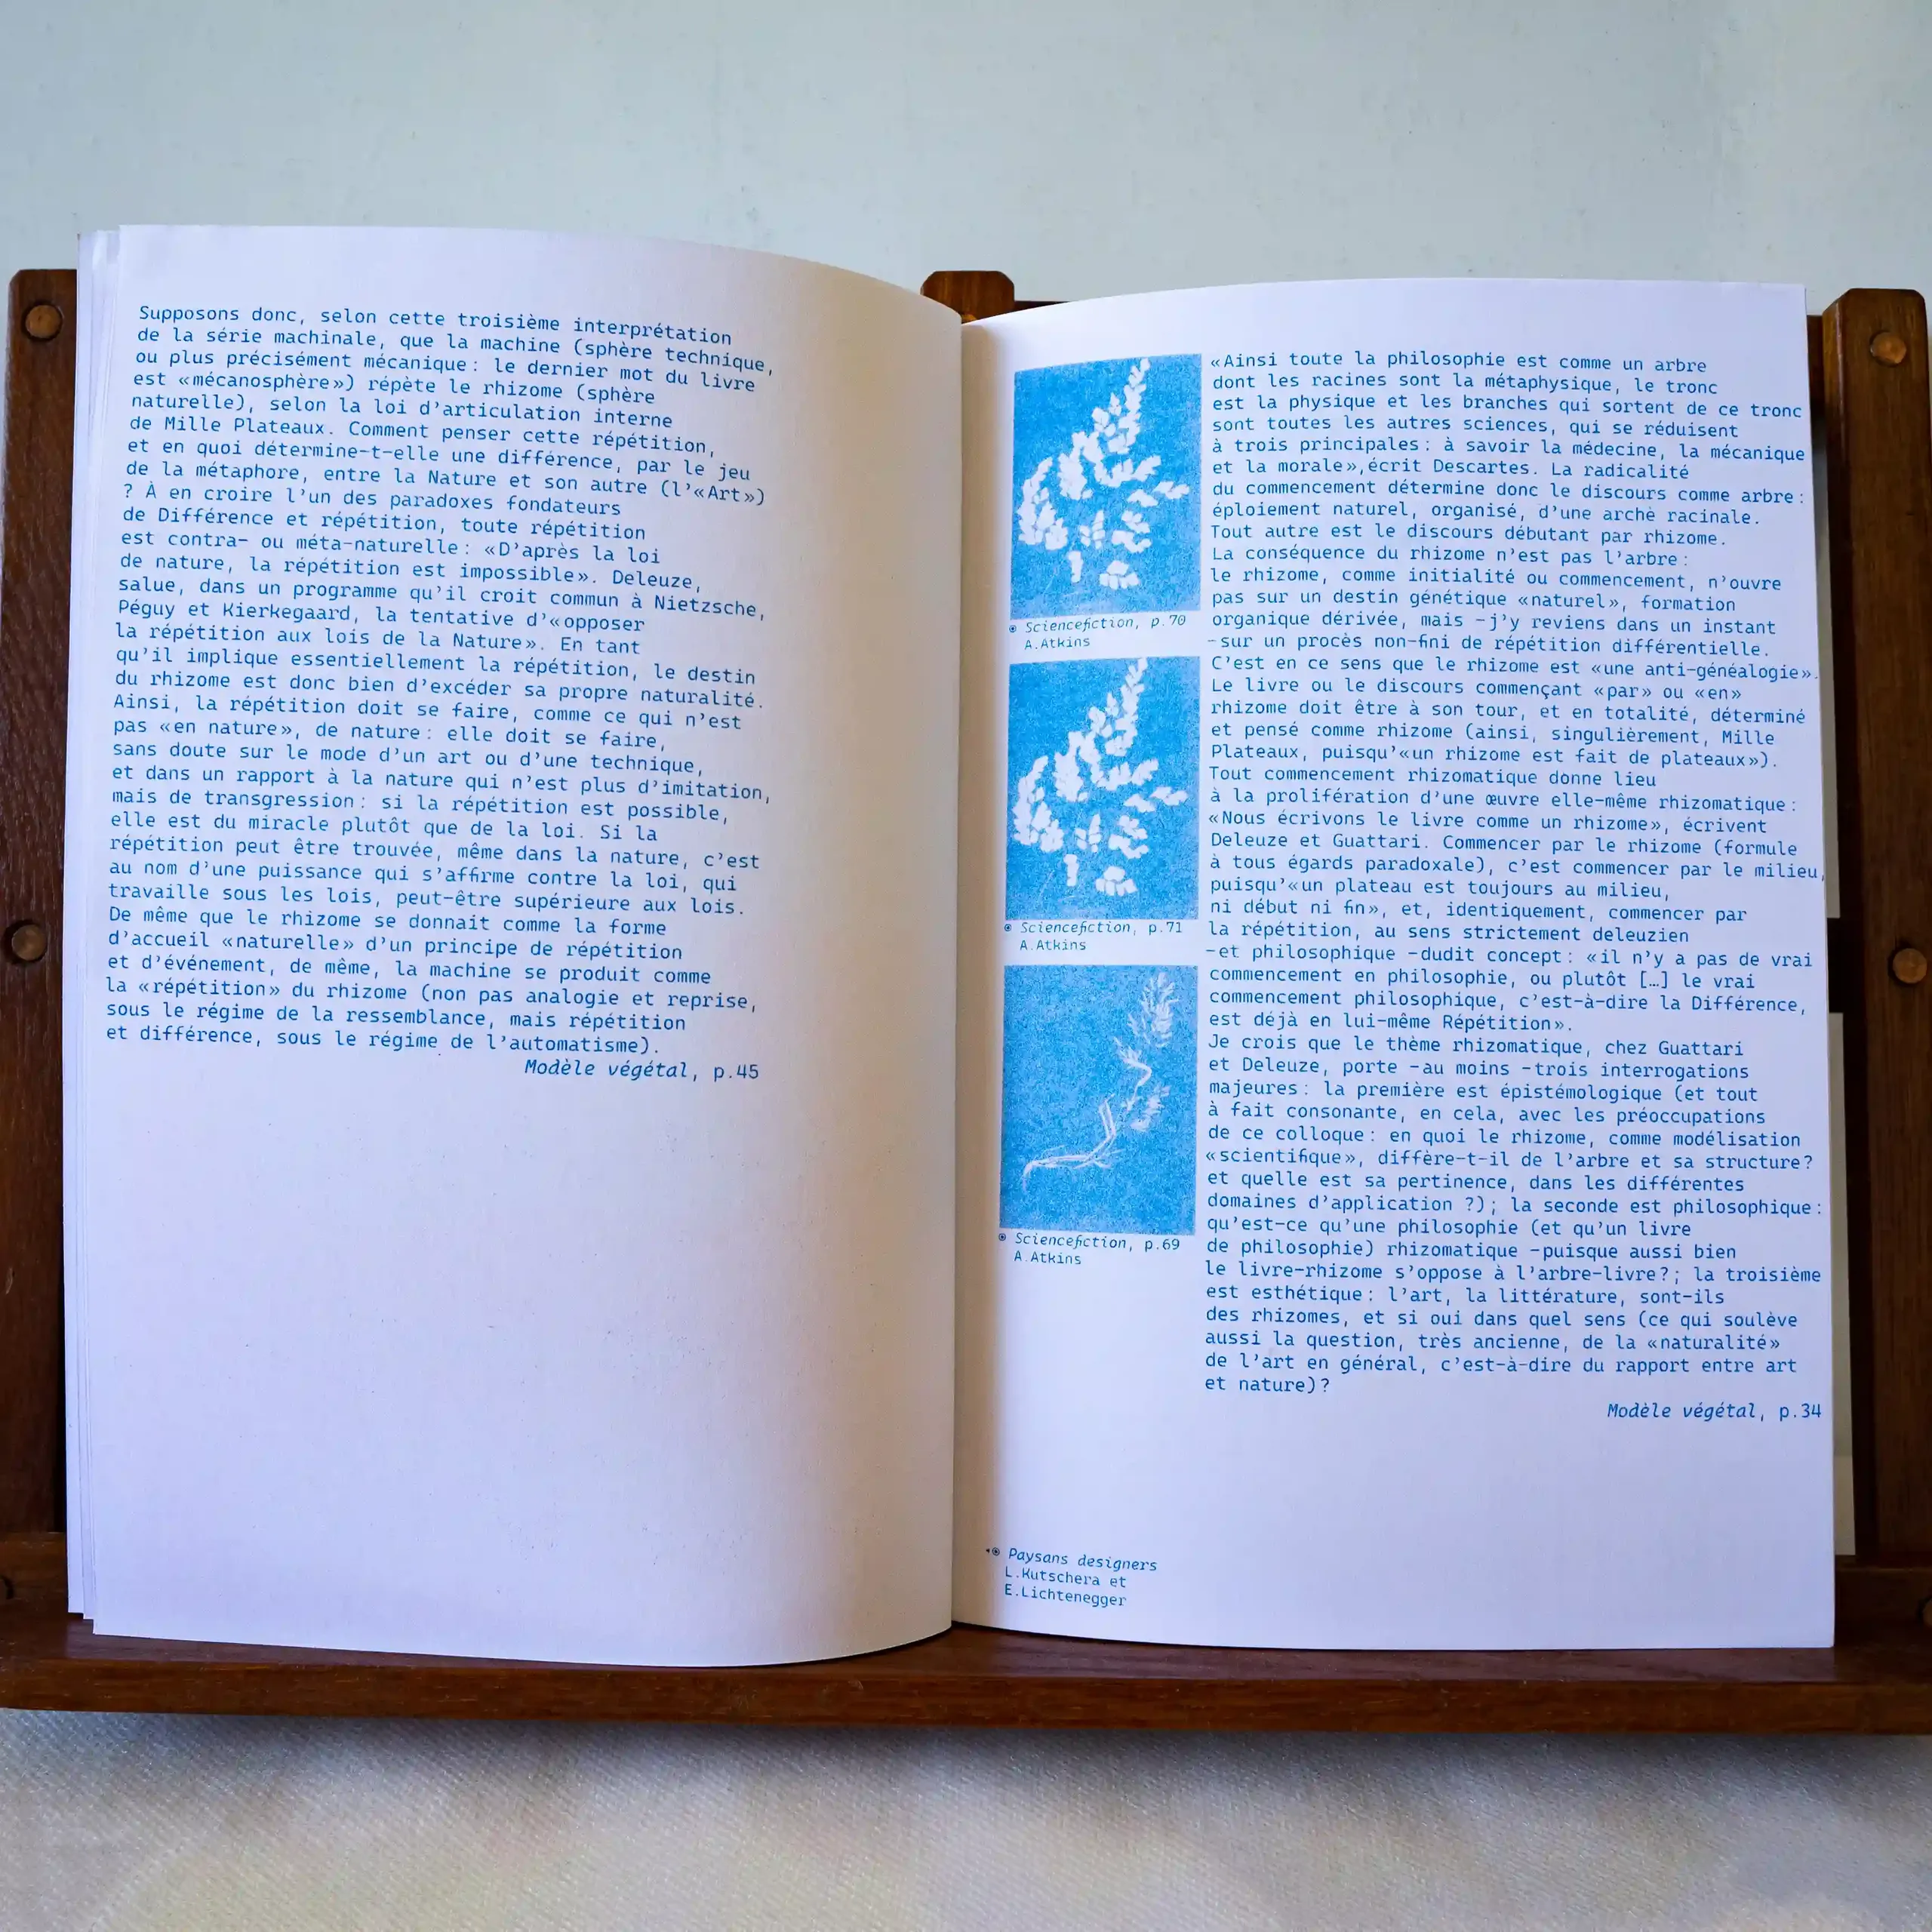 Supposons donc, selon cette troisième interprétation
de la série machinale, que la machine (sphère technique,
ou plus précisément mécanique : le dernier mot du livre
est «mécanosphère») répète le rhizome (sphère
naturelle), selon la loi d'articulation interne
de Mille Plateaux. Comment penser cette répétition,
et en quoi détermine-t-elle une différence, par le jeu
de la métaphore, entre la Nature et son autre (l'«Art»)
? À en croire l'un des paradoxes fondateurs
de Différence et répétition, toute répétition
est contra- ou méta-naturelle : «D'après la loi
de nature, la répétition est impossible». Deleuze,
salue, dans un programme qu'il croit commun à Nietzsche,
Péguy et Kierkegaard, la tentative d'«opposer
la répétition aux lois de la Nature». En tant
qu'il implique essentiellement la répétition, le destin
du rhizome est donc bien d'excéder sa propre naturalité.
Ainsi, la répétition doit se faire, comme ce qui n'est
pas «en nature», de nature : elle doit se faire,
sans doute sur le mode d'un art ou d'une technique,
et dans un rapport à la nature qui n'est plus d'imitation,
mais de transgression : si la répétition est possible,
elle est du miracle plutôt que de la loi. Si la
répétition peut être trouvée, même dans la nature, c'est
au nom d'une puissance qui s'affirme contre la loi, qui
travaille sous les lois, peut-être supérieure aux lois.
De même que le rhizome se donnait comme la forme
d'accueil «naturelle» d'un principe de répétition
et d'événement, de même, la machine se produit comme
la «répétition» du rhizome (non pas analogie et reprise,
sous le régime de la ressemblance, mais répétition
et différence, sous le régime de l'automatisme).
Modèle végétal, p.45
Sciencefiction, p.70
A.Atkins
Sciencefiction, p.71
A.Atkins
Sciencefiction, p.69
A.Atkins
Paysans designers
L.Kutschera et
E.Lichtenegger
«Ainsi toute la philosophie est comme un arbre
dont les racines sont la métaphysique, le tronc
est la physique et les branches qui sortent de ce tronc
sont toutes les autres sciences, qui se réduisent
à trois principales : à savoir la médecine, la mécanique
et la morale»,écrit Descartes. La radicalité
du commencement détermine donc le discours comme arbre :
éploiement naturel, organisé, d'une archè racinale.
Tout autre est le discours débutant par rhizome.
La conséquence du rhizome n'est pas l'arbre :
le rhizome, comme initialité ou commencement, n'ouvre
pas sur un destin génétique «naturel», formation
organique dérivée, mais -j'y reviens dans un instant
-sur un procès non-fini de répétition différentielle.
C'est en ce sens que le rhizome est «une anti-généalogie».
Le livre ou le discours commençant «par» ou «en»
rhizome doit être à son tour, et en totalité, déterminé
et pensé comme rhizome (ainsi, singulièrement, Mille
Plateaux, puisqu'«un rhizome est fait de plateaux»).
Tout commencement rhizomatique donne lieu
à la prolifération d'une œuvre elle-même rhizomatique :
«Nous écrivons le livre comme un rhizome», écrivent
Deleuze et Guattari. Commencer par le rhizome (formule
à tous égards paradoxale), c'est commencer par le milieu,
puisqu'«un plateau est toujours au milieu,
ni début ni fin», et, identiquement, commencer par
la répétition, au sens strictement deleuzien
-et philosophique -dudit concept : «il n'y a pas de vrai
commencement en philosophie, ou plutôt […] le vrai
commencement philosophique, c'est-à-dire la Différence,
est déjà en lui-même Répétition».
Je crois que le thème rhizomatique, chez Guattari
et Deleuze, porte -au moins -trois interrogations
majeures : la première est épistémologique (et tout
à fait consonante, en cela, avec les préoccupations
de ce colloque : en quoi le rhizome, comme modélisation
«scientifique», diffère-t-il de l'arbre et sa structure?
et quelle est sa pertinence, dans les différentes
domaines d'application ?); la seconde est philosophique :
qu'est-ce qu'une philosophie (et qu'un livre
de philosophie) rhizomatique -puisque aussi bien
le livre-rhizome s'oppose à l'arbre-livre?; la troisième
est esthétique : l'art, la littérature, sont-ils
des rhizomes, et si oui dans quel sens (ce qui soulève
aussi la question, très ancienne, de la «naturalité»
de l'art en général, c'est-à-dire du rapport entre art
et nature)?
Modèle végétal, p.34